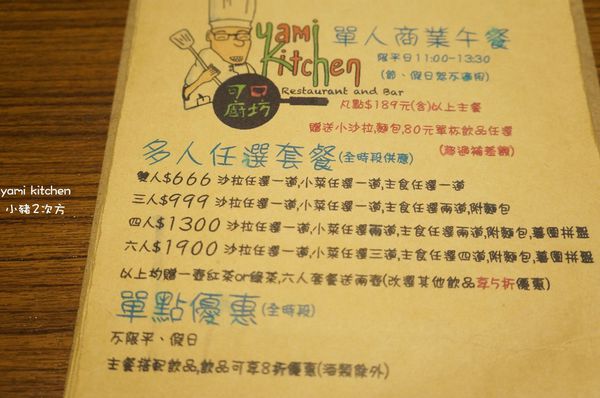 yami
Kitchen
Restaurant and Bar
可口
廚坊
單人商業午餐
限平日11:00-13:30
(節、假日恕不適用)
凡點$189元(含)以上主餐
贈送小沙拉,麵包,80元單杯飲品任選
(超過補差額)
多人任選套餐(全時段供應)
雙人$666 沙拉任選一道,小菜任選一道,主食任選一道
三人$999 沙拉任選一道,小菜任選一道,主食任選兩道,附麵包
四人$1300 沙拉任選一道,小菜任選一道,主食任選兩道,附麵包,薯園拼盤
六人$1900 沙拉任選一道,小菜任選三道,主食任選四道,附麵包,薯園拼盤
以上均贈一壺紅茶or綠茶,六人套餐送兩壺(改選其他飲品享5折優惠)
單點優惠(全時段)
不限平、假日
主餐搭配飲品,飲品可享8折優惠(酒類除外)
yami kitchen
小豬2次方